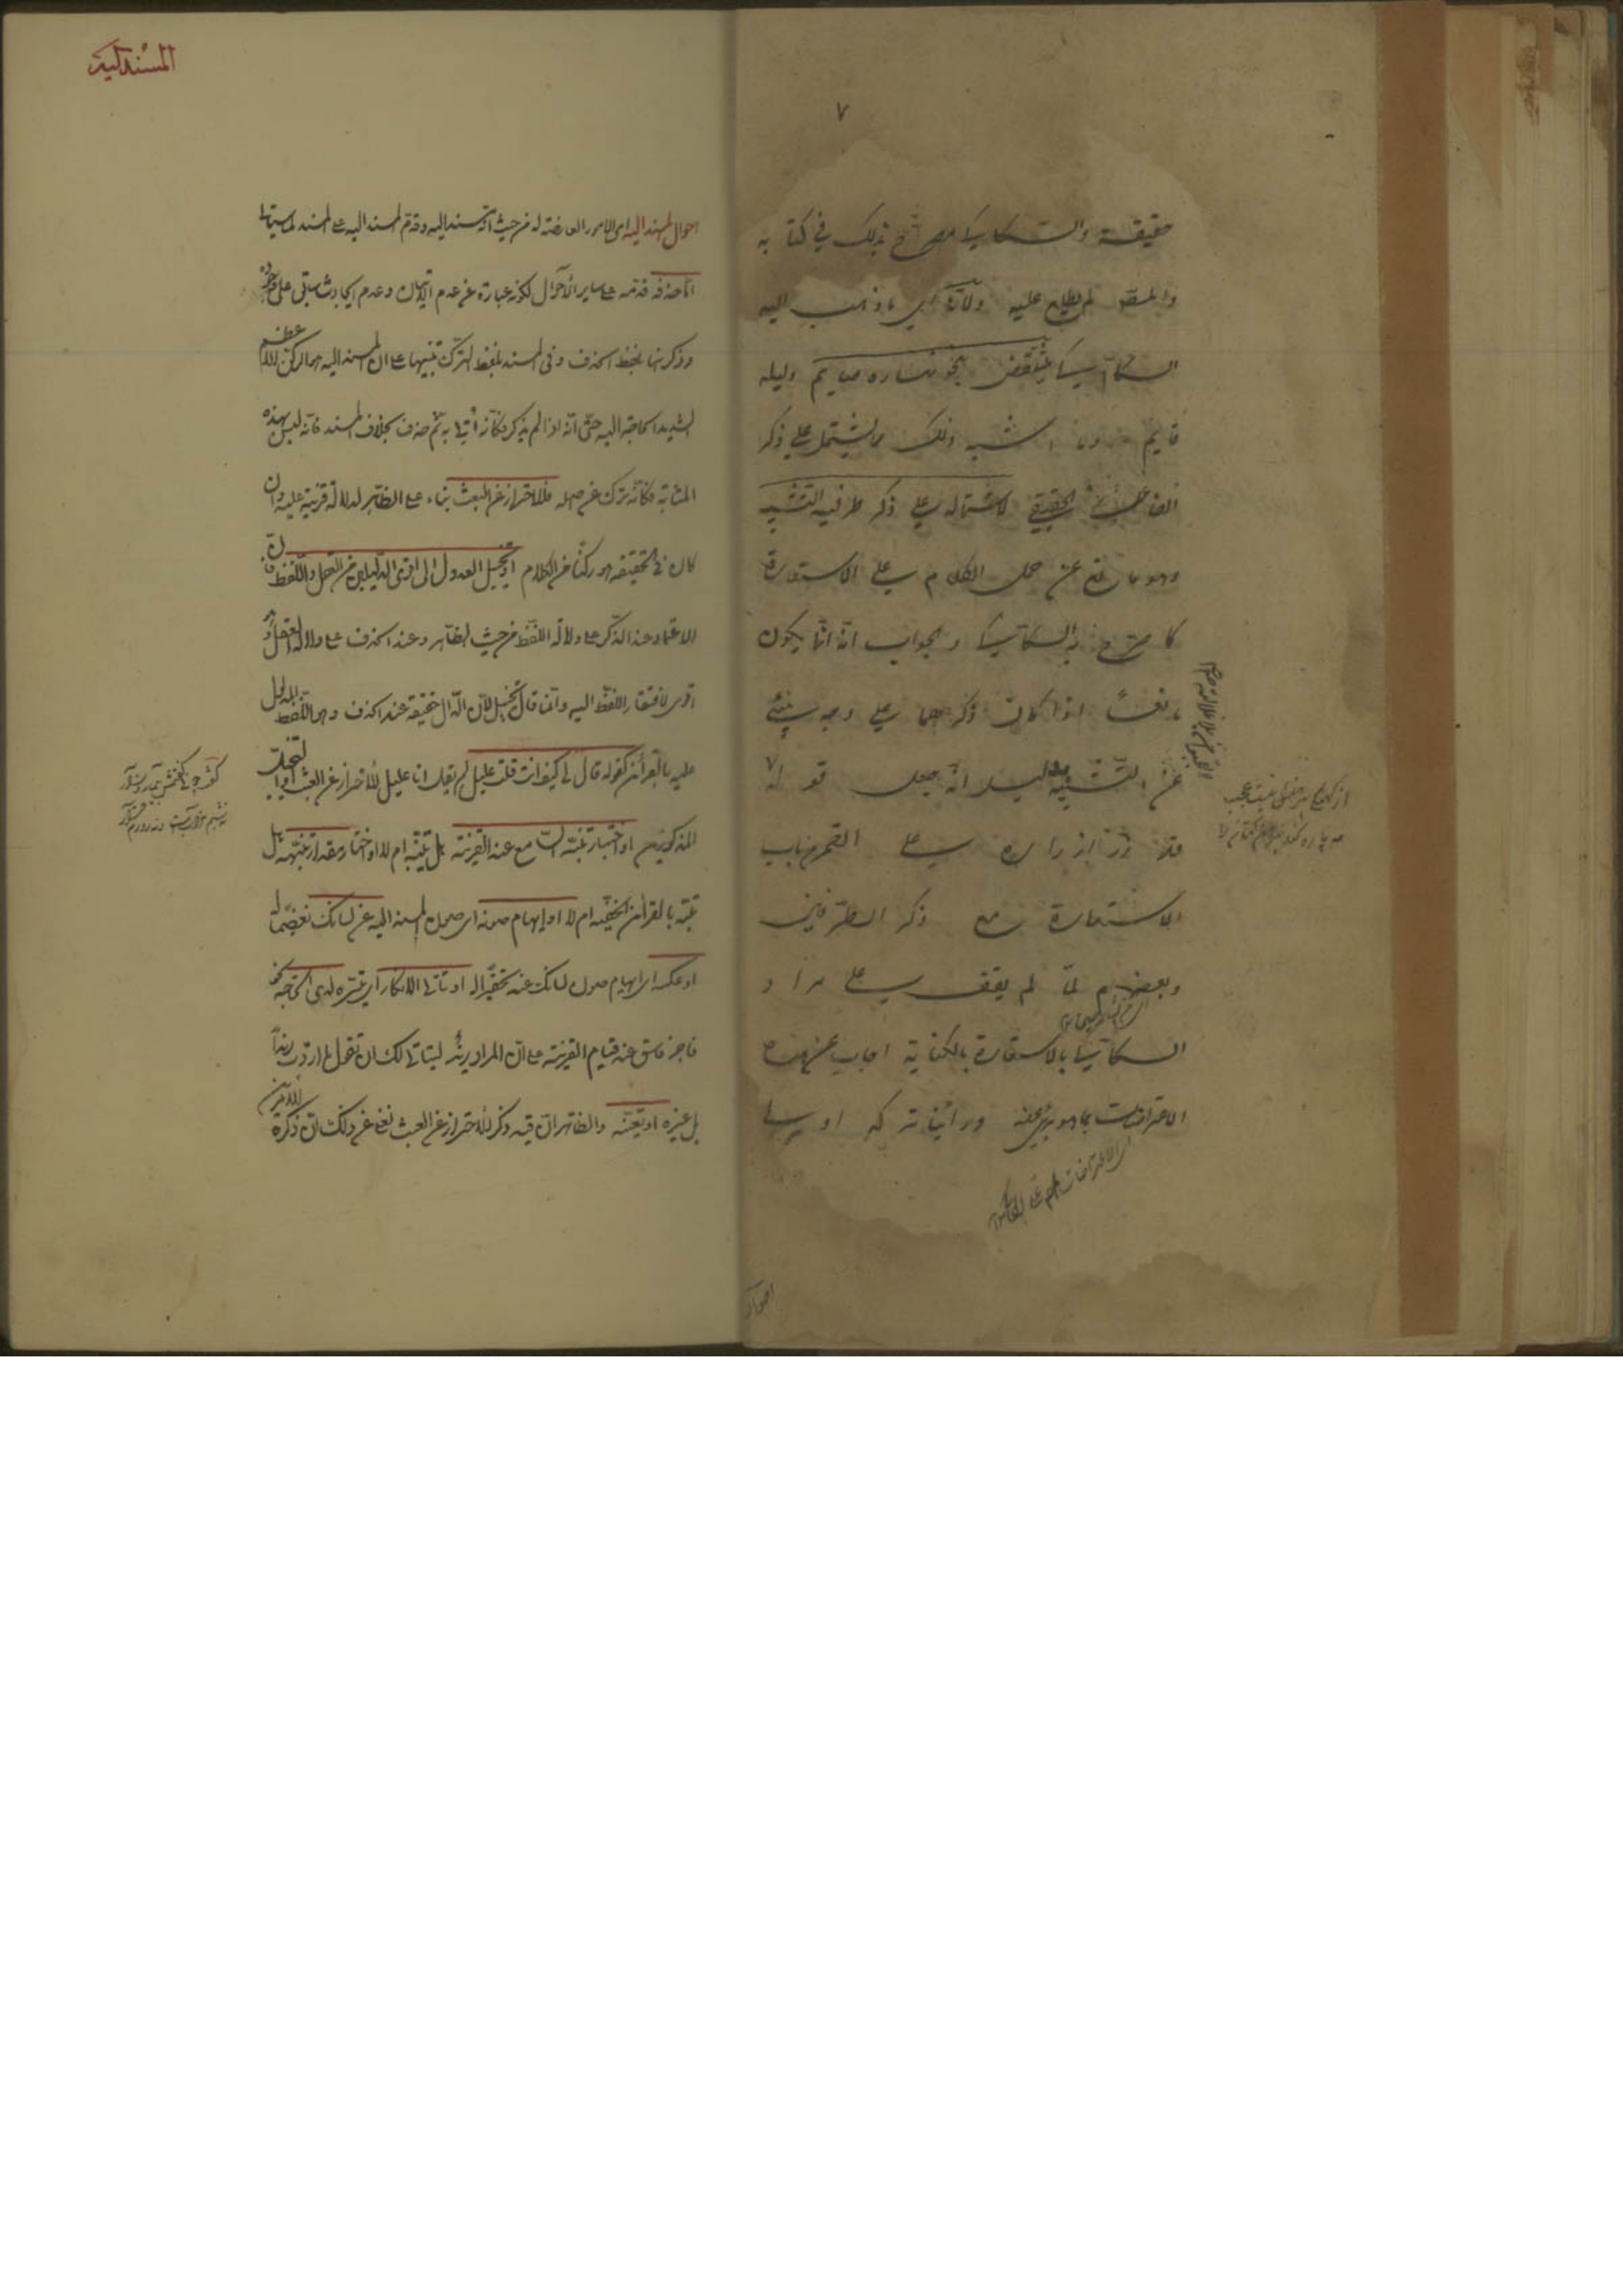 ٧
حقيقة والسكاكي مصرح بذلك في كتابه
والمصنف لم يطلع عليه ولانه اي ما ذهب اليه
السكاكي ينتقض بنحو نهاره صايم وليله
قايم وما اشبه ذلك مما يشتمل على ذكر
الفاعل الحقيقي لاشتماله على ذكر طرفي التشبيه
وهو مانع عن حمل الكلام على الاستعارة
كما صرح به السكاكي والجواب انه انما يكون
مانعًا اذا كان ذكرهما على وجه ينبئ
عن التشبيه بدليل انه جعل قوله
قد زر ازراره على القمر من باب
الاستعارة مع ذكر الطرفين
وبعضهم لمّا لم يقف على مراد
السكاكي بالاستعارة بالكناية اجاب عن هذه
الاعتراضات بما هو برئ عنه وراينا تركه اولى
احوال
المسند اليه
احوال المسند اليه اى الامور العارضة له من حيث انه مسند اليه وقدم المسند اليه على المسند لما سياتى
اما حذفه قدمه على ساير الاحوال لكونه عبارة عن عدم الاتيان به وعدم الحادث سابق على وجوده
وذكر ههنا بلفظ الحذف وفى المسند بلفظ الترك تنبيها على ان المسند اليه هو الركن الاعظم
الشديد الحاجة اليه حتى انه اذا لم يذكر فكانه اُتى به ثم حذف بخلاف المسند فانه ليس بهذه
المثابة فكانه ترك عن اصله فللاحتراز عن العبث بناء على الظاهر لدلالة القرينة عليه وان
كان فى الحقيقة هو ركنا من الكلام او تخييل العدول الى اقوى الدليلين من العقل واللفظ فان
الاعتماد عند الذكر على دلالة اللفظ من حيث الظاهر وعند الحذف على دلالة العقل وهو
اقوى لافتقار اللفظ اليه وانما قال تخييل لان الدال حقيقة عند الحذف هو اللفظ المدلول
عليه بالقرائن كقوله قال لى كيف انت قلت عليل لم يقل انا عليل للاحتراز عن العبث او التخييل
المذكورين او اختبار تنبه السامع عند القرينة هل يتنبه ام لا او اختبار مقدار تنبهه هل
يتنبه بالقرائن الخفية ام لا او ايهام صونه اى صون المسند اليه عن لسانك تعظيما له
او عكسه اى ايهام صون لسانك عنه تحقيرا له او تأتى الانكار اى تيسره لدى الحاجة نحو
فاجر فاسق عند قيام القرينة على ان المراد زيد ليتأتى لك ان تقول ما اردت زيداً
بل غيره او تعينه والظاهر ان فيه ذكر الاحتراز عن العبث يغنى عن ذلك لكن ذكره